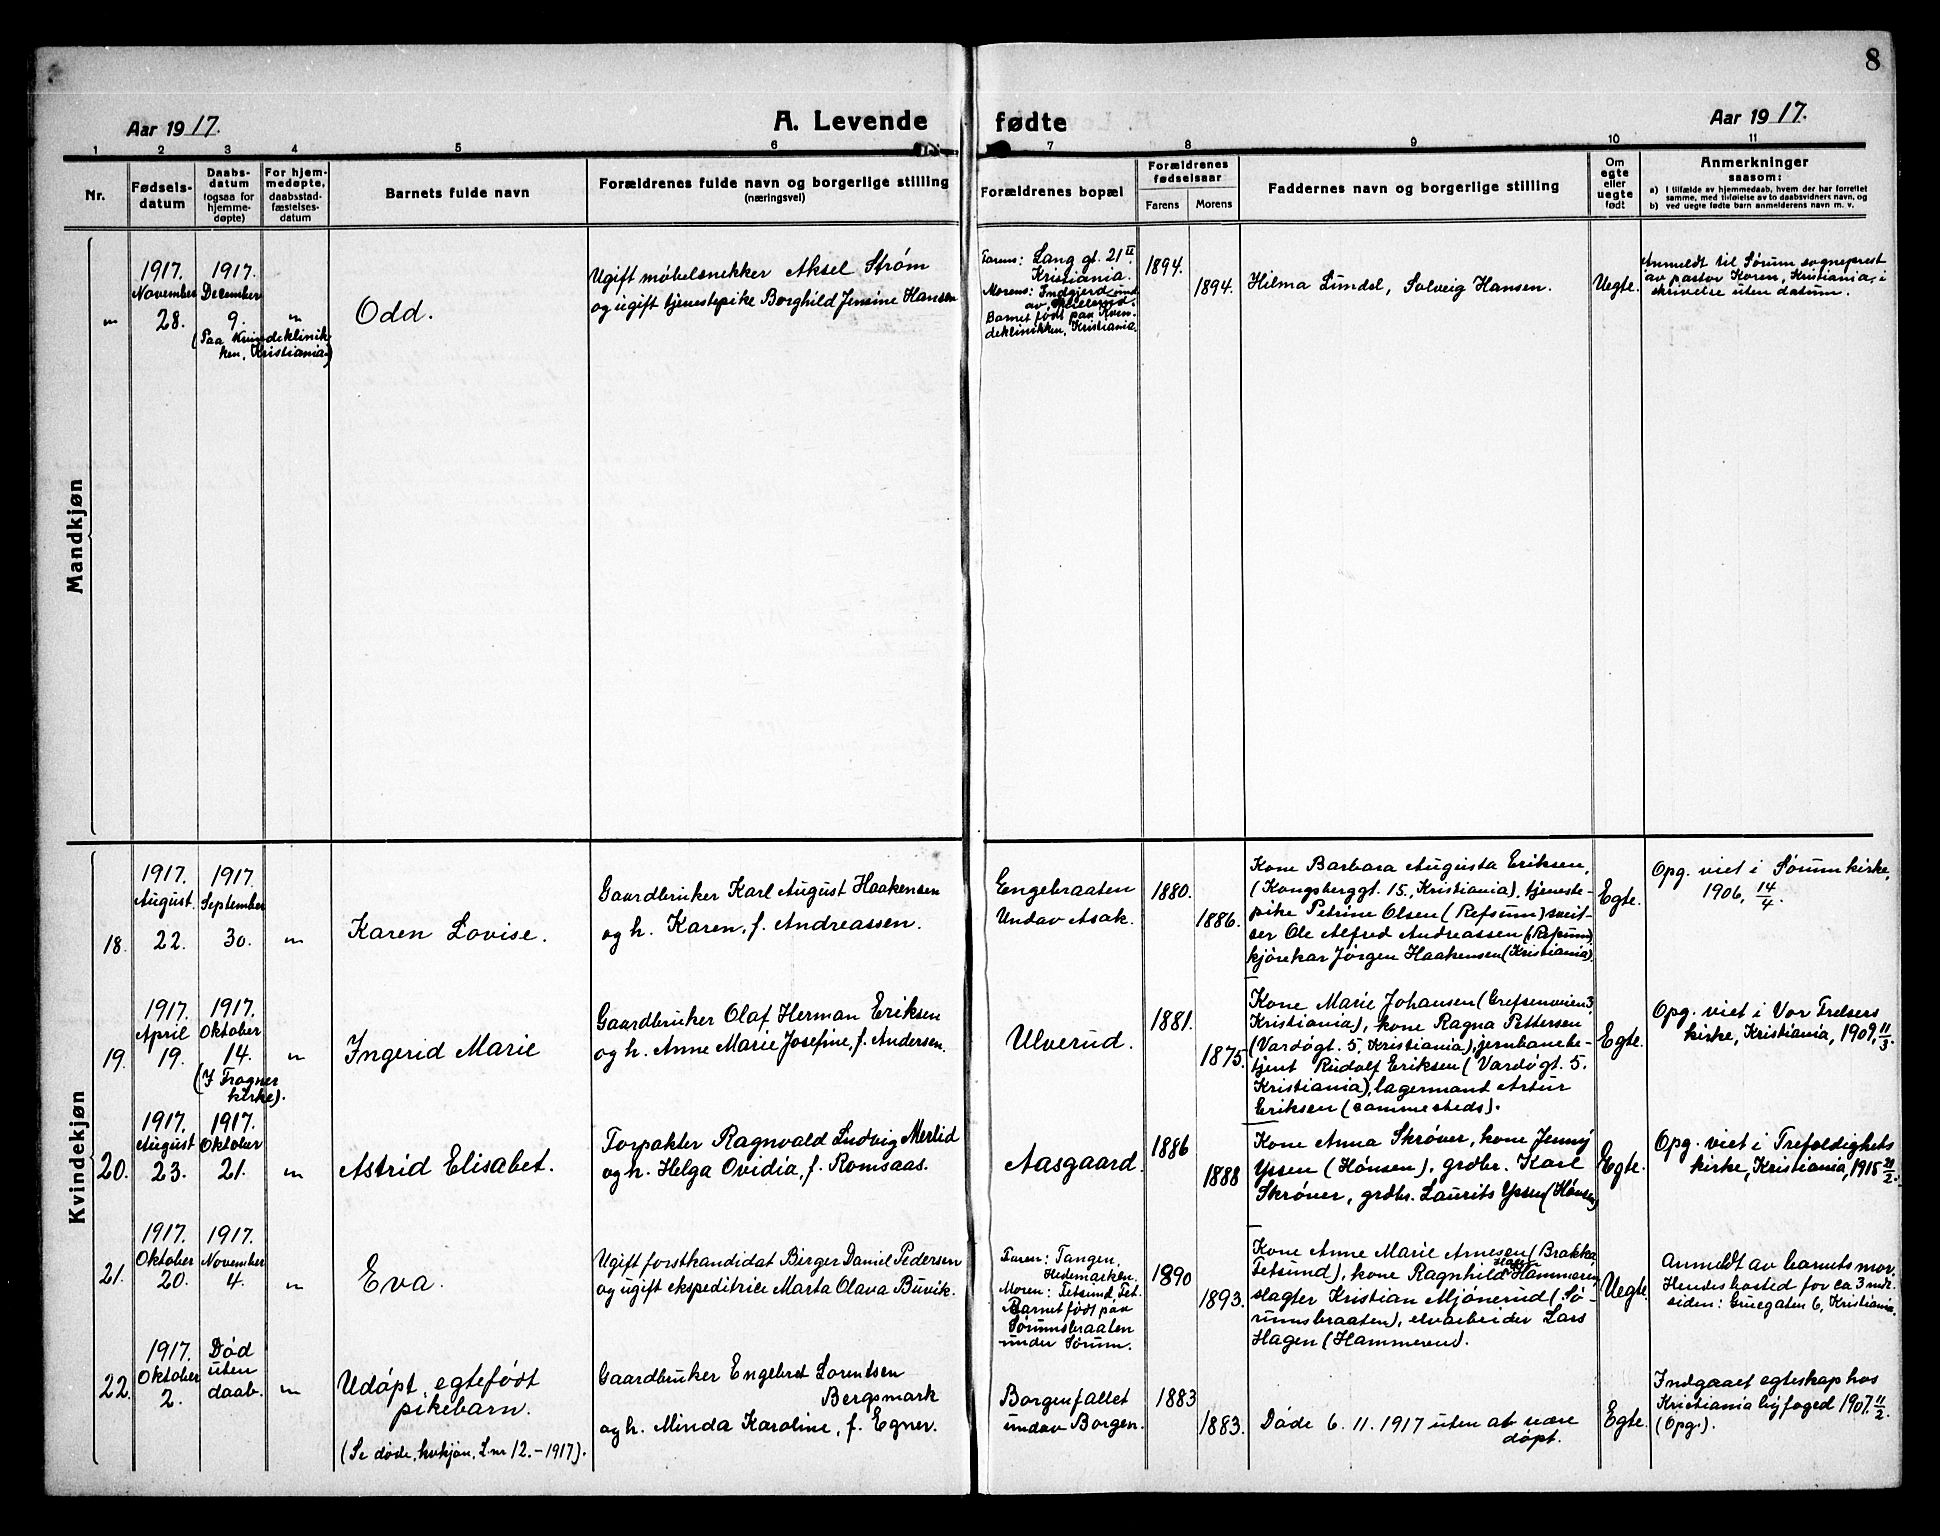 8
Aar 1917.
A. Levende fødte
Aar 1917.
1 2 3 4 5 6 7 8 9 10 11
Nr.
Fødsels-
datum
Daabs-
datum
(ogsaa for
hjemme-
døpte)
For hjem-
medøpte,
daabsstad-
fæstelses-
datum
Barnets fulde navn
Forældrenes fulde navn og borgerlige stilling
(næringsvei)
Forældrenes bopæl
Forældrenes
fødselsaar
Farens Morens
Faddernes navn og borgerlige stilling
Om
egte
eller
uegte
født
Anmerkninger
saasom:
a) I tilfælde av hjemmedaab, hvem der har forrettet
samme, med tilføielse av to daabsvidners navn, og
b) ved uegte fødte barn anmelderens navn m. v.
Mandkjøn
"
1917.
November
28.
1917.
December
9.
(Paa Kvindeklinik-
ken, Kristiania)
"
Odd.
Ugift møbelsnekker Aksel Strøm
og ugift tjenestepike Borghild Jensine Hansen
Farens: Lang gt. 21 II
Kristiania.
Morens: Indgjerd. und.
av
Barnet født paa Kvin-
deklinikken, Kristiania.
1894.
1894.
Hilma Lundel, Solveig Hansen.
Uegte.
Anmeldt til Sørum sogneprest
av pastor Koren, Kristiania, i
skrivelse uten datum.
Kvindekjøn
18.
1917.
August
22.
1917.
September
30.
"
Karen Lovise.
Gaardbruker Karl August Haakensen
og h. Karen, f. Andreassen.
Engebraaten
Undav Asak.
1880.
1886.
Kone Barbara Augusta Eriksen,
(Kongsberggt. 15, Kristiania), tjeneste-
pike Petrine Olsen (Refsum) sveit-
ser Ole Alfred Andreassen (Refsum)
kjørekar Jørgen Haakensen (Kristiania).
Egte.
Opg. viet i Sørum kirke,
1906, 14/4.
19.
1917.
April
19.
1917.
Oktober
14.
(I Frogner
kirke).
"
Ingerid Marie
Gaardbruker Olaf Herman Eriksen
og h. Anne Marie Josefine, f. Andersen.
Ulverud.
1881.
1875.
Kone Marie Johansen (Grefsenveien 3,
Kristiania), kone Ragna Pettersen
(Vardøgt. 5, Kristiania), jernbanebe-
tjent Rudolf Eriksen (Vardøgt. 5.
Kristiania), lagermand Artur
Eriksen (sammesteds).
Egte.
Opg. viet i Vor Frelsers
kirke, Kristiania, 1909, 11/3.
20.
1917.
August
23.
1917.
Oktober
21.
"
Astrid Elisabet.
Forpakter Ragnvald Ludvig Merlid
og h. Helga Ovidia, f. Romsaas.
Aasgaard.
1886
1888
Kone Anna Skrøver, kone Jenny
Yssen (Hønsen), grdbr. Karl
Skrøver, grdbr. Laurits Yssen (Hønsen)
Egte.
Opg. viet i Trefoldighets
kirke, Kristiania, 1915
21.
1917.
Oktober
20.
1917.
November
4.
"
Eva.
Ugift forstkandidat Birger Daniel Pedersen
og ugift ekspeditrice Marta Olava Buvik.
Faren: Tangen,
Hedemarken.
Moren: Fetsund, Fet.
Barnet født paa
Sørumsbraaten
under Sørum.
1890
1893.
Kone Anne Marie Arnesen (Brakka,
Fetsund), kone Ragnhild Hagen (Hammeren),
slagter Kristian Mjønerud (Sø-
rumsbraaten), elvarbeider Lars
Hagen (Hammeren).
Uegte.
Anmeldt av barnets mor.
Hendes bosted for ca 3 mdr.
siden: Gruegaten 6, Kristiania.
22.
1917.
Oktober
2.
Død
uten
daab.
"
Udøpt, egtefødt
pikebarn.
(Se døde, kvkjøn, L.nr 12.-1917).
Gaardbruker Engebret Lorentsen
Bergsmark
og h. Minda Karoline, f. Egner.
Borgenfallet
undav Borgen.
1883
1883.
Døde 6. 11. 1917 uten at være
døpt.
Egte.
Indgaaet egteskap hos
Kristiania byfoged 1907, 11/2.
(Opg.).